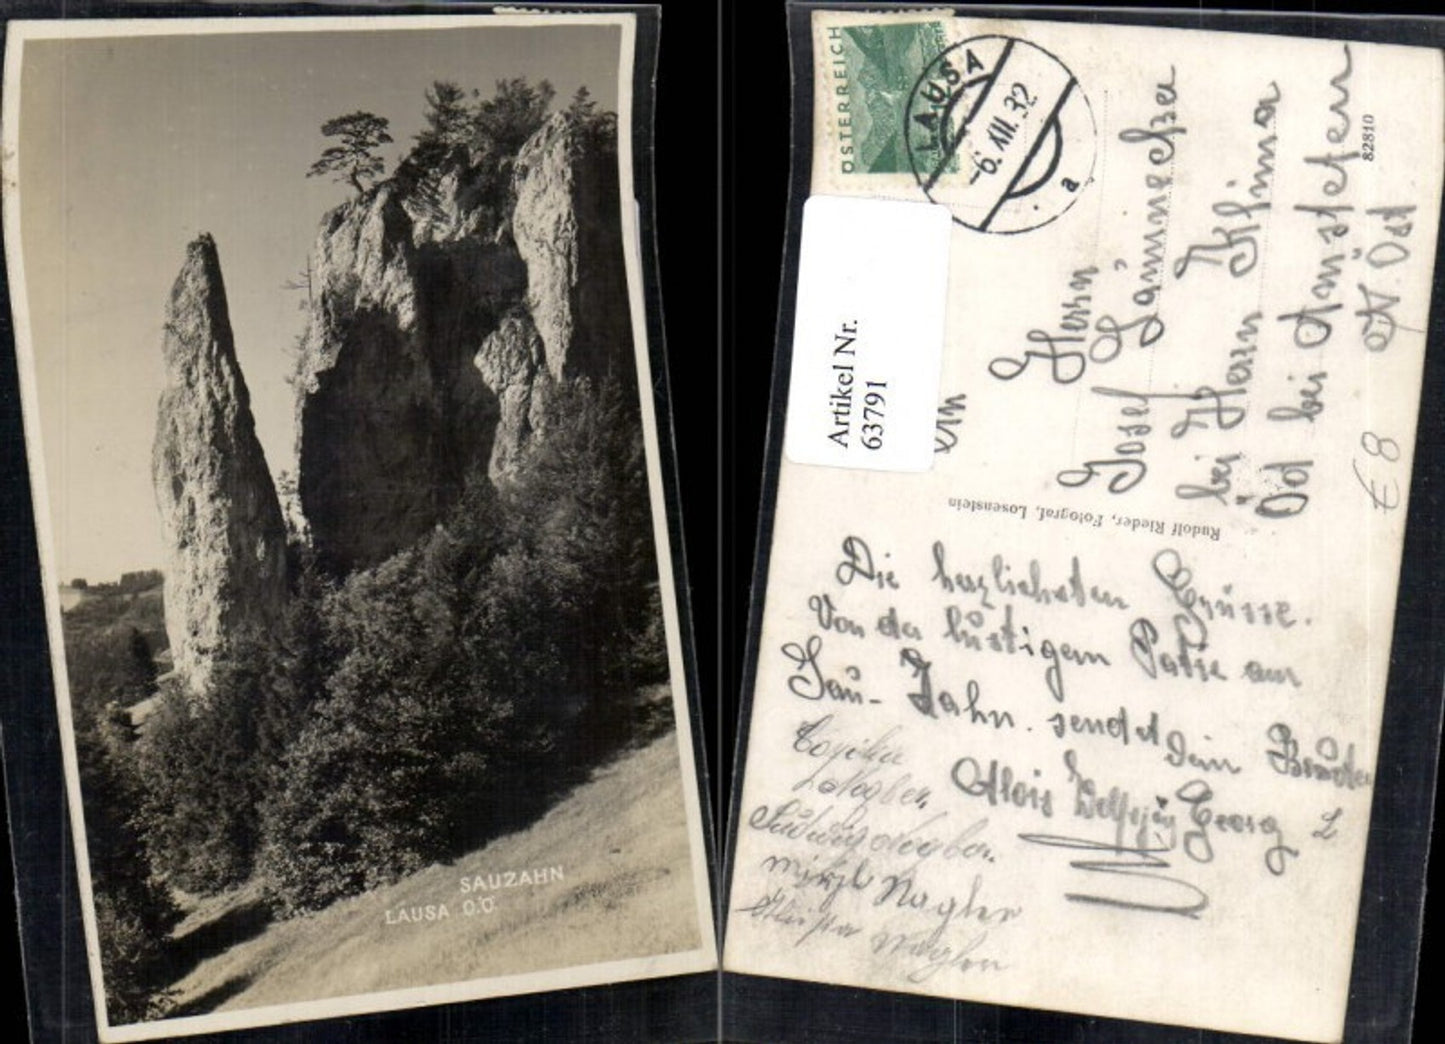 SAUZAHN
LAUSA O.Ö.
ÖSTERREICH
LAUSA
-6. XII. 32
a
Artikel Nr.
63791
An
Herrn
Josef
bei Herrn Klima
Öd bei Amstetten
N. Öst
82810
€ 8
Rudolf Rieder, Fotograf, Losenstein
Die herzlichsten Grüsse.
Von der lustigen Patie am
Sau-Zahn. sendet dein Bruder
Alois Georg L
Nagler
Ludwig Nagler
Nagler
Nagler